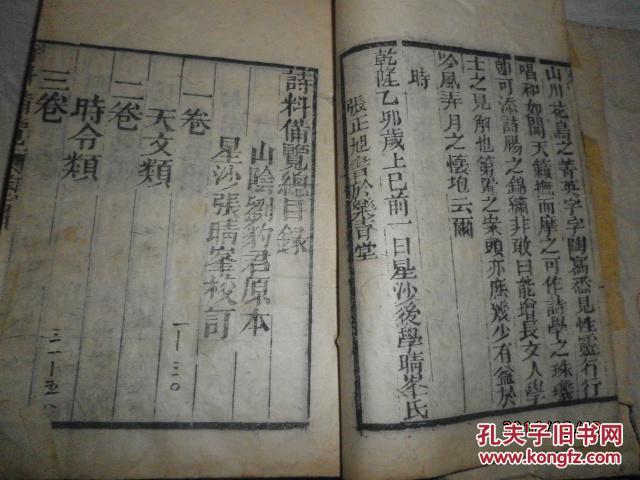 山川花鳥之菁英字字陶寫悉見性靈行行
唱和如聞天籟撫而摩之可作詩學之珠璣
即可添詩腸之錦繡非敢曰能增長文人學
士之見解也第置之案頭亦庶幾少有益於
吟風弄月之懷抱云爾
時
乾隆乙卯歲上巳前一日星沙後學晴峯氏
張正旭書於樂育堂
詩料備覽總目錄
山陰劉豹君原本
星沙張晴峯校訂
一卷
天文類
一-三〇
二卷
時令類
三一-五
三卷
孔夫子旧书网
KONGFZ.COM